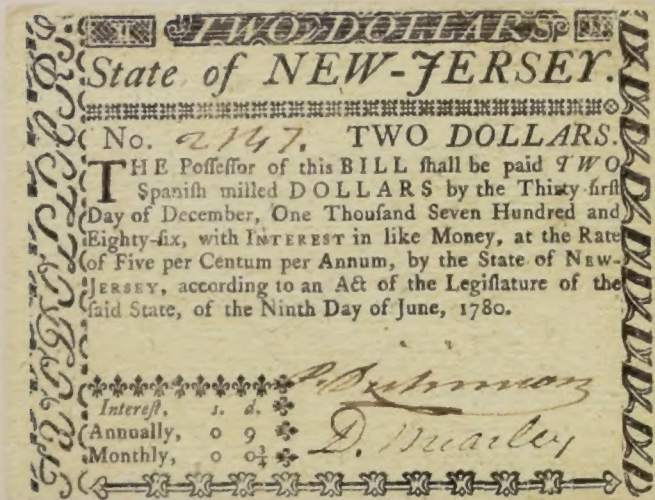 TWO DOLLARS
State of NEW-JERSEY.
No. 2147. TWO DOLLARS.
THE Poſſeſſor of this BILL ſhall be paid TWO
Spaniſh milled DOLLARS by the Thirty-firſt
Day of December, One Thouſand Seven Hundred and
Eighty-ſix, with INTEREST in like Money, at the Rate
of Five per Centum per Annum, by the State of NEW-
JERSEY, according to an Act of the Legiſlature of the
ſaid State, of the Ninth Day of June, 1780.
Intereſt, s. d.
Annually, 0 9
Monthly, 0 0¾
D. Brearley